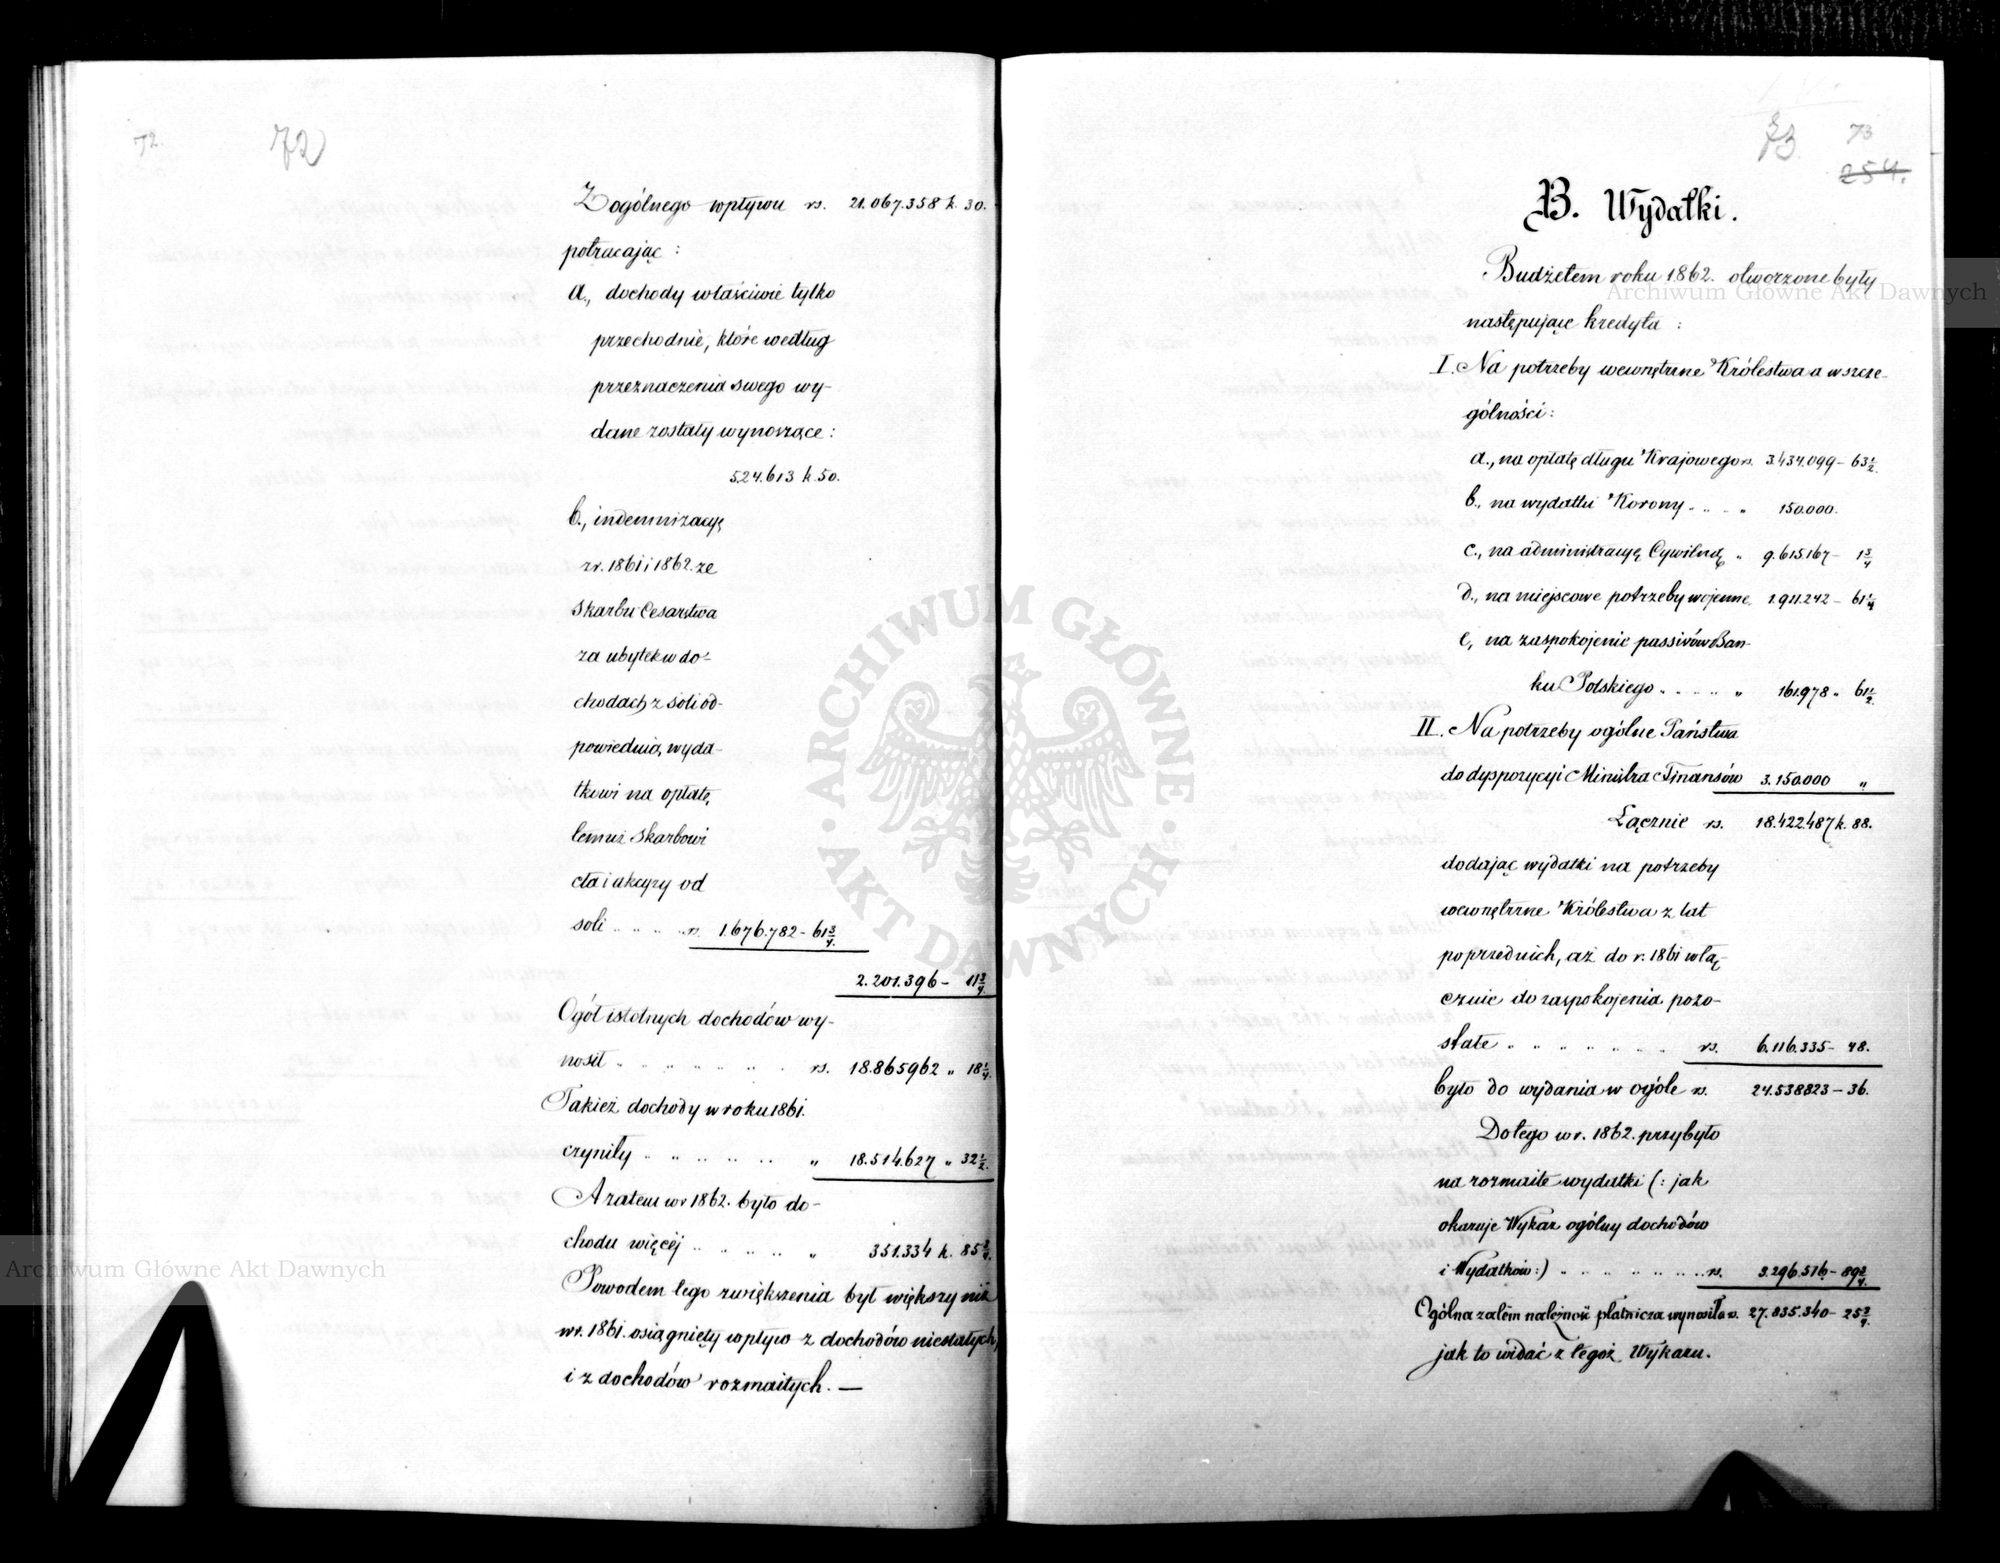 72.
72
Z ogólnego wpływu rs. 21.067.358 k. 30.
potrącając :
a., dochody właściwie tylko
przechodnie, które według
przeznaczenia swego wy-
dane zostały wynoszące :
524.613 k. 50.
b., indemnizacyę
z r. 1861 i 1862. ze
Skarbu Cesarstwa
za ubytek w do-
chodach z soli od-
powiednio, wyda-
tkowi na opłatę,
temuż Skarbowi
cła i akcyzy od
soli .. .. .. .. rs. 1.676.782 - 61 3/4.
2.201.396 - 11 3/4.
Ogół istotnych dochodów wy-
nosił .. .. .. .. .. .. rs. 18.865962 „ 18 1/4.
Takież dochody w roku 1861.
czyniły .. .. .. .. .. „ 18.514.627 „ 32 1/2.
A zatem w r 1862. było do-
chodu więcéj .. .. .. .. „ 351.334 k. 85 3/4.
Powodem tego zwiększenia był większy niż
w r. 1861. osiągnięty wpływ z dochodów niestałych,
i z dochodów rozmaitych. —
73.
73
254.
B. Wydatki.
Budżetem roku 1862. otworzone były
następujące kredyta :
I. Na potrzeby wewnętrzne Królestwa a wszcze-
gólności :
a., na opłatę długu Krajowego rs. 3.434.099 - 63 1/2.
b., na wydatki Korony .. .. „ 150.000.
c., na administracyę Cywilną „ 9.615.167 - 1 3/4
d., na miejscowe potrzeby wojenne 1.911.242 - 61 1/4
e, na zaspokojenie passivów Ban-
ku Polskiego .. .. .. „ 161.978 „ 61 1/2.
II. Na potrzeby ogólne Państwa
do dyspozycyi Ministra Finansów 3.150.000 „
Łącznie rs. 18.422.487 k. 88.
dodając wydatki na potrzeby
wewnętrzne Królestwa z lat
poprzednich, aż do r. 1861 włą-
cznie do zaspokojenia pozo-
stałe .. .. .. .. .. .. rs. 6.116.335 - 48.
było do wydania w ogóle rs. 24.538823 - 36.
Do tego w r. 1862. przybyło
na rozmaite wydatki (: jak
okazuje Wykaz ogólny dochodów
i Wydatków :) .. .. .. .. .. rs. 3.296.516 - 89 3/4.
Ogólna zatém należność płatnicza wynosiła rs. 27.835.340 - 25 3/4.
jak to widać z tegoż Wykazu.
Archiwum Główne Akt Dawnych
Archiwum Główne Akt Dawnych
ARCHIWUM GŁÓWNE · AKT DAWNYCH ·